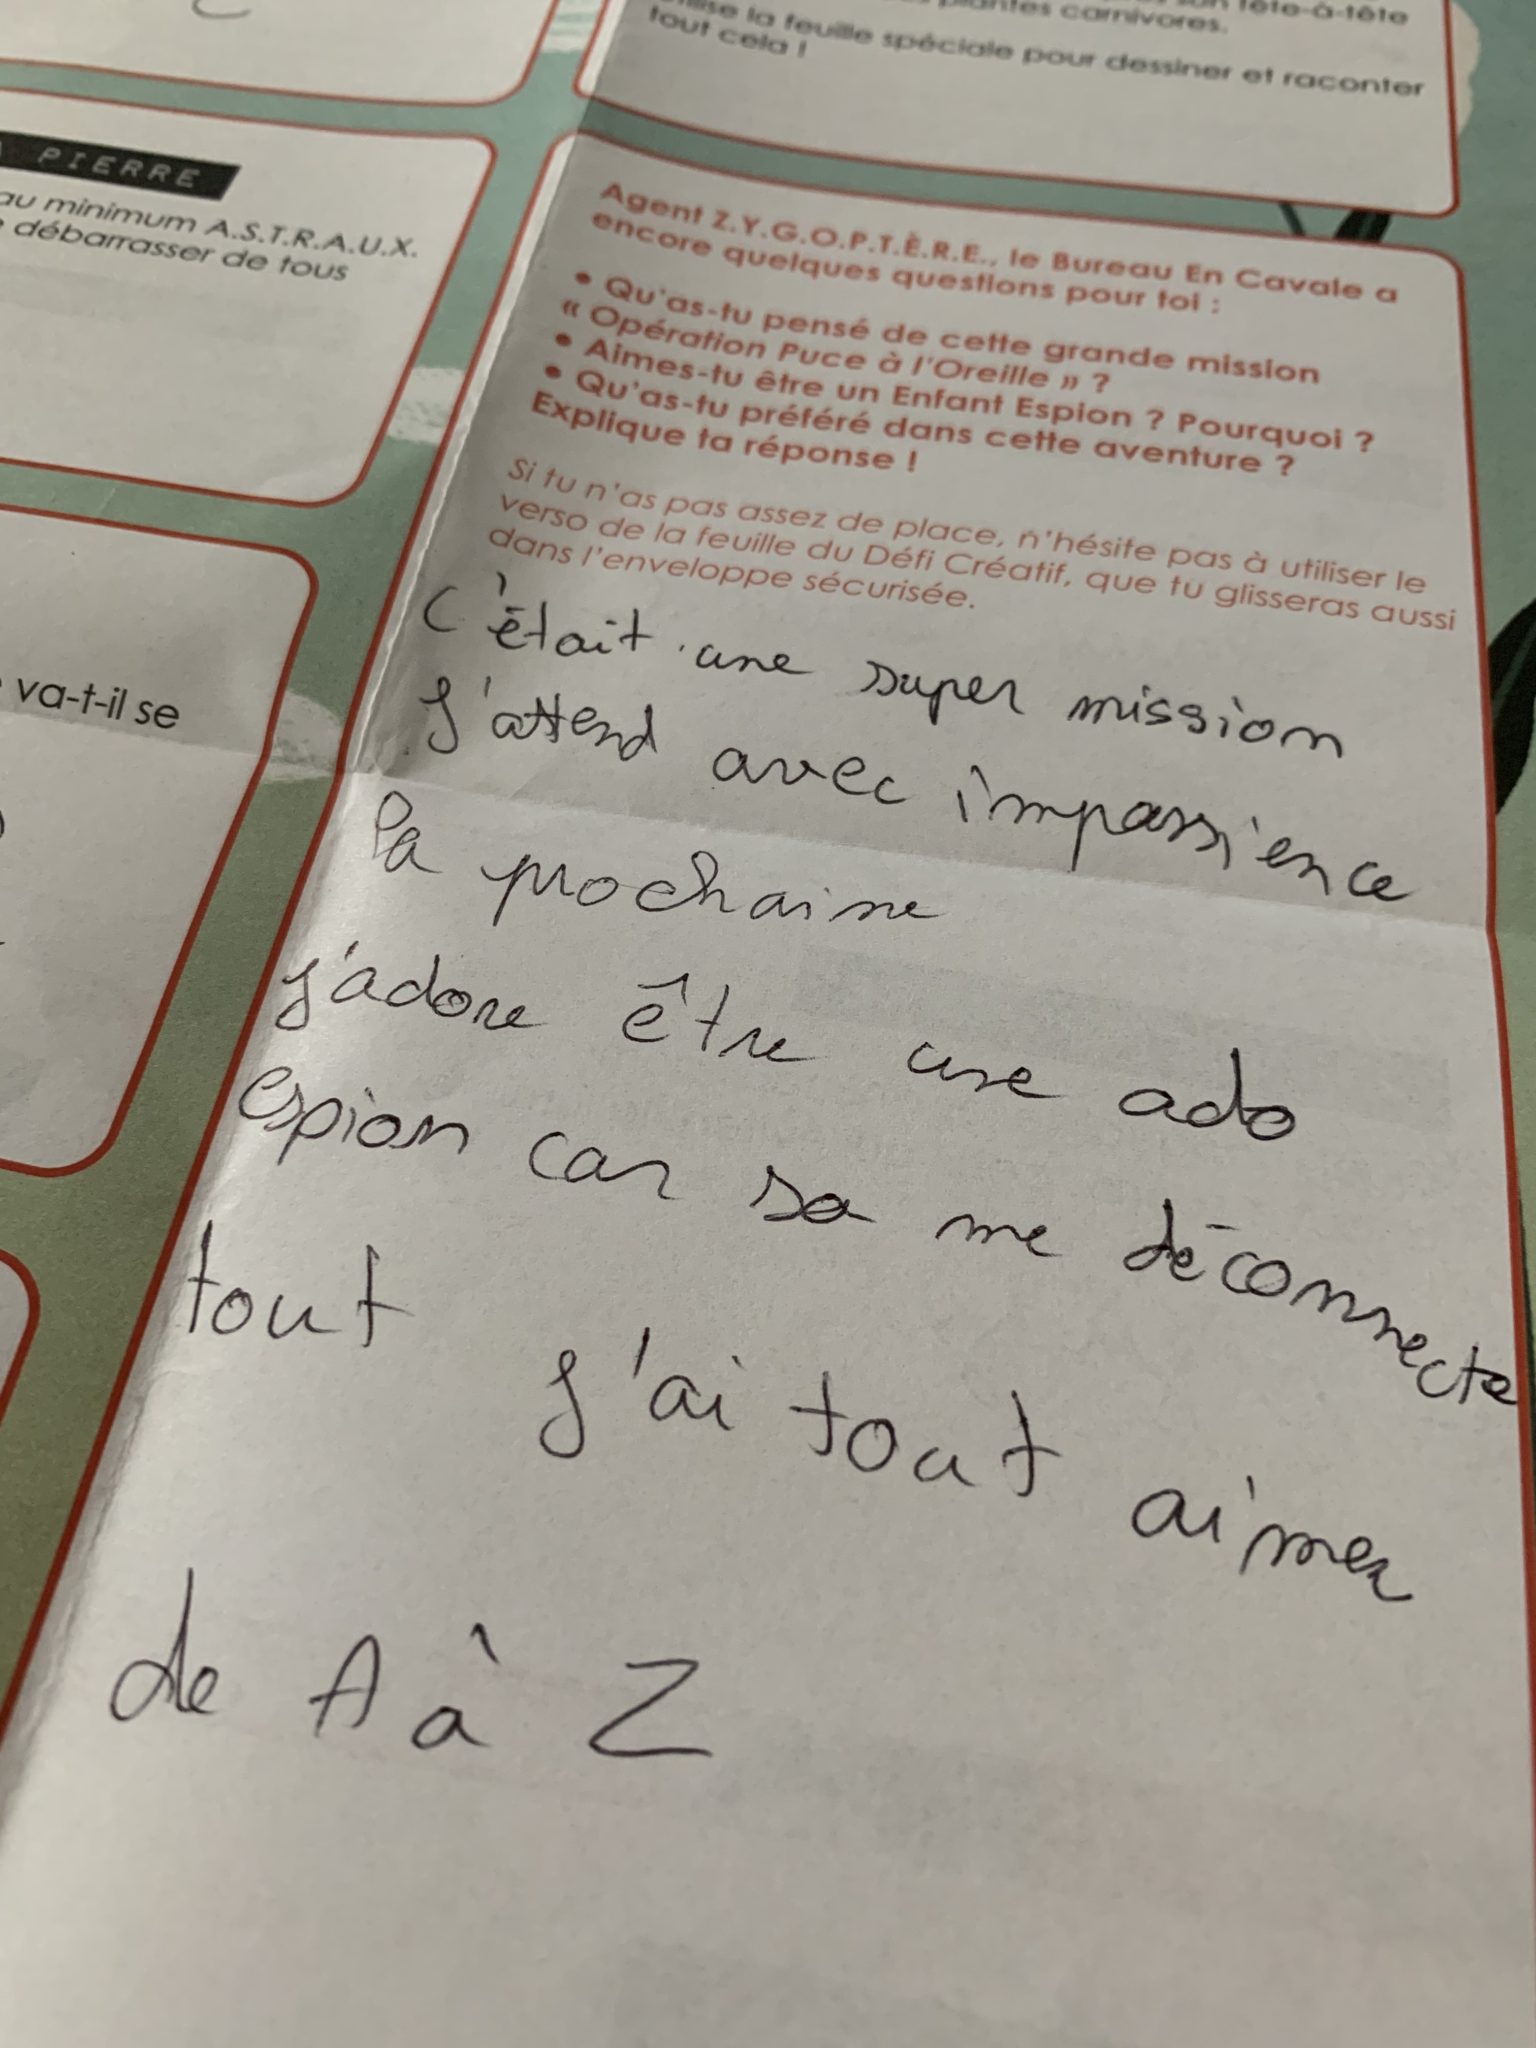 tête-à-tête
plantes carnivores.
la feuille spéciale pour dessiner et raconter
tout cela !
PIERRE
au minimum A.S.T.R.A.U.X.
débarrasser de tous
va-t-il se
Agent Z.Y.G.O.P.T.È.R.E., le Bureau En Cavale a
encore quelques questions pour toi :
• Qu'as-tu pensé de cette grande mission
« Opération Puce à l'Oreille » ?
• Aimes-tu être un Enfant Espion ? Pourquoi ?
• Qu'as-tu préféré dans cette aventure ?
Explique ta réponse !
Si tu n'as pas assez de place, n'hésite pas à utiliser le
verso de la feuille du Défi Créatif, que tu glisseras aussi
dans l'enveloppe sécurisée.
C'était une super mission
J'attend avec impassience
la prochaine
J'adore être une ado
espion car sa me déconnecte
tout J'ai tout aimer
de A à Z